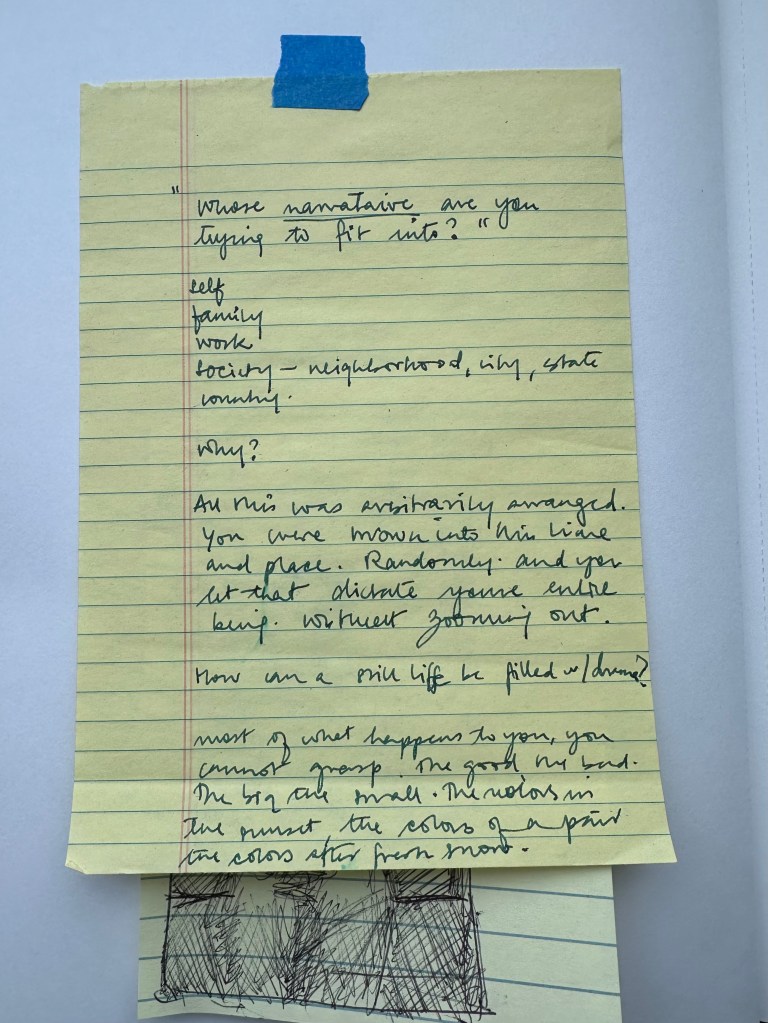 "
whose narrataive are you
trying to fit into? "
self
family
work
society – neighborhood, city, state
country.
why?
All this was arbitrarily arranged.
You were thrown into this time
and place. Randomly. and you
let that dictate youre entire
being. without zooming out.
How can a still life be filled w/drama?
most of what happens to you, you
cannot grasp. The good the bad.
The big the small. The colors in
the sunset, the colors of a pair
the colors after fresh snow.